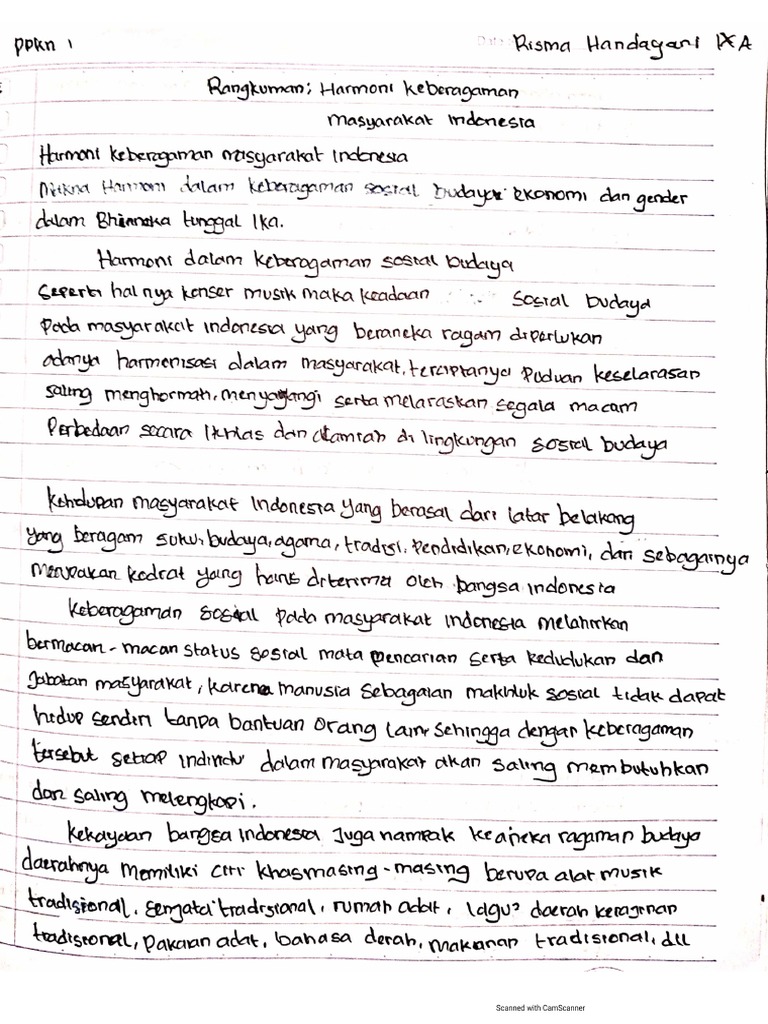 PPKn 1
Risma Handayani IX A
Rangkuman; Harmoni Keberagaman
masyarakat Indonesia
Harmoni keberagaman masyarakat Indonesia
Makna Harmoni dalam keberagaman sosial budaya ekonomi dan gender
dalam Bhinneka tunggal Ika.
Harmoni dalam keberagaman sosial budaya
Seperti hal nya konser musik maka keadaan sosial budaya
Pada masyarakat indonesia yang beraneka ragam diperlukan
adanya harmenisasi dalam masyarakat, terciptanya Paduan keselarasan
saling menghormati, menyayangi serta melaraskan segala macam
Perbedaan secara Ikhlas dan alamiah di lingkungan sosial budaya
Kehidupan masyarakat Indonesia yang berasal dari latar belakang
yang beragam suku, budaya, agama, tradisi, Pendidikan, ekonomi, dan sebagainya
merupakan kodrat yang harus diterima oleh bangsa indonesia
Keberagaman sosial pada masyarakat indonesia melahirkan
bermacan - macan status sosial mata pencarian serta kedudukan dan
Jabatan masyarakat, karena manusia sebagaian makhluk sosial tidak dapat
hidup sendiri tanpa bantuan orang lain, sehingga dengan keberagaman
tersebut setiap individu dalam masyarakat akan saling membutuhkan
dan saling melengkapi.
Kekayaan bangsa indonesia Juga nampak keaneka ragaman budaya
daerahnya memiliki ciri khasmasing-masing berupa alat musik
tradisional, senjata tradisional, rumah adat, lagu² daerah kerajinan
tradisional, pakaian adat, bahasa derah, makanan tradisional, dll
Scanned with CamScanner